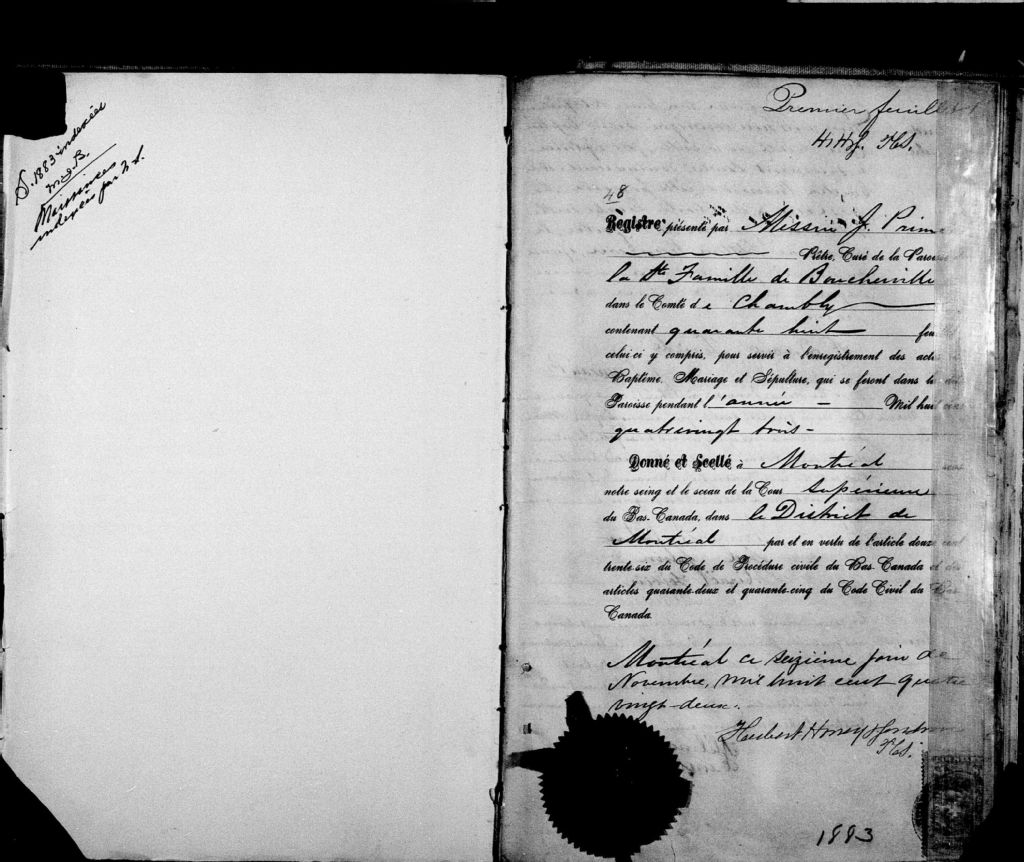 S. 1883 indexées
Naissances
indexées par
Premier feuillet
48
Registre présenté par Messire J. Prim
Prêtre, Curé de la Paroisse
la Ste Famille de Boucherville
dans le Comté de Chambly
contenant quarante huit feu
celui-ci y compris, pour servir à l'enregistrement des acte
Baptême, Mariage et Sépulture, qui se feront dans la
Paroisse pendant l'année — Mil huit cent
quatrevingt trois -
Donné et Scellé à Montréal sous
notre seing et le sceau de la Cour Supérieure
du Bas-Canada, dans le District de
Montréal par et en vertu de l'article douze cent
trente-six du Code de Procédure civile du Bas-Canada et des
articles quarante-deux et quarante-cinq du Code Civil du Bas
Canada.
Montréal ce seizième jour de
Novembre, mil huit cent quatre
vingt-deux.
1883